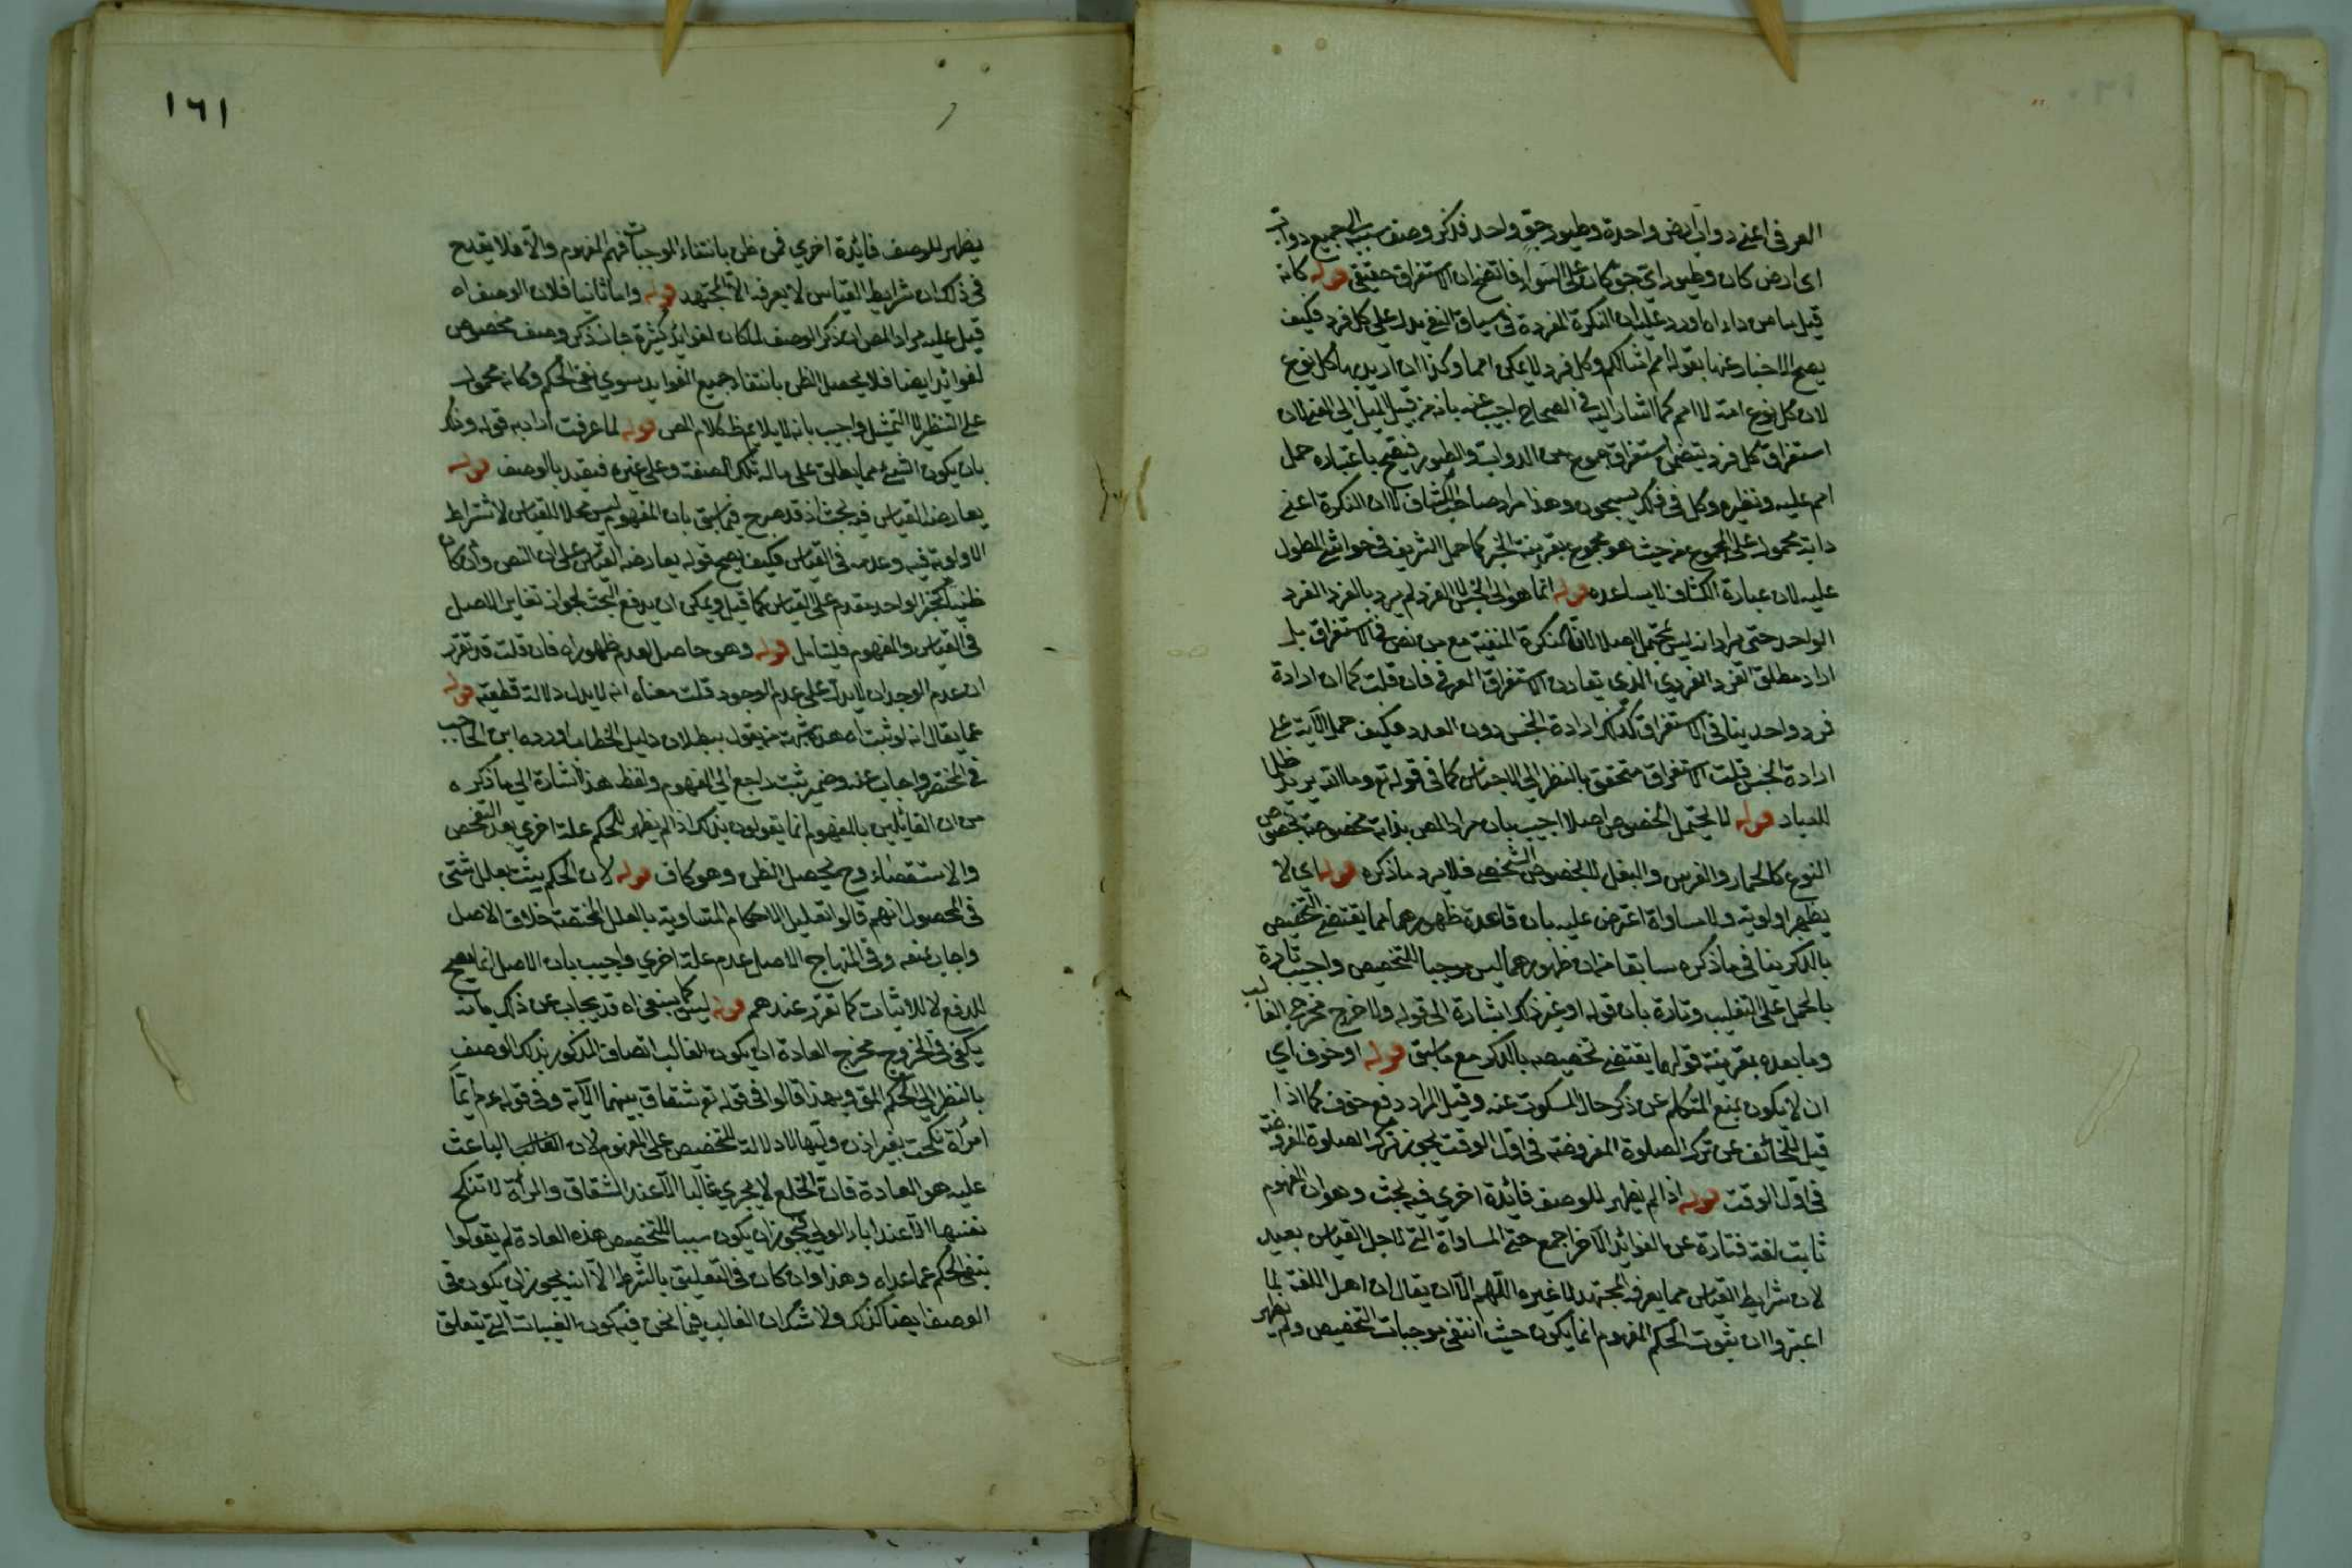 العرفي اعني دواب ارض واحدة وطيور جو واحد فذكر وصف سببه الى جميع دواب
اي ارض كان وطيور اي جو كان على السواء فاتضح ان الاستغراق حقيقي قوله كانه
قيل ما من داء اه اورد عليه ان النكرة المفردة في سياق النفي يدل على كل فرد فكيف
يصح الاخبار عنها بقوله امم امثالكم وكل فرد لا يمكن امما وكذا ان اريد بها كل نوع
لان كل نوع امة لا امم كما اشار اليه في الصحاح اجيب عنه بانه من قبيل الميل الى المعنى لان
استغراق كل فرد يتضمن استغراق مجموع من الدواب والطيور فيصح باعتباره حمل
امم عليه ونظيره وكل في فلك يسبحون وهذا مراد صاحب الكشاف لا ان النكرة اعني
دابة محمولة على المجموع من حيث هو مجموع بقرينة الخبر كما حمل الشريف في حواشي المطول
عليه لان عبارة الكشاف لا يساعده قوله انما هو الى الجنس لا الفرد لم يرد بالفرد الفرد
الواحد حتى يراد انه ليس محتمل اصلا لان النكرة المنفية مع من نص في الاستغراق بل
اراد مطلق الفرد الفردي الذي تعارف الاستغراق العرفي فان قلت كما ان ارادة
فرد واحد ينافي الاستغراق كذلك ارادة الجنس دون العدد فكيف حمل الآية على
ارادة الجنس قلت الاستغراق متحقق بالنظر الى الاجناس كما في قوله تع وما الله يريد ظلما
للعباد قوله لا يحتمل الخصوص اصلا اجيب بان مراد المص بدابة مخصوصة بخصوص
النوع كالحمار والفرس والبغل لا بخصوص الشخص فلا يرد ما ذكره قوله اي لا
يظهر اولويته ولا مساواة اعترض عليه بان قاعدة ظهورهما مما يقتضي التخصيص
بالذكر ينافي ما ذكره سابقا من ان ظهورهما ليس موجبا للتخصيص واجيب تارة
بالحمل على التغليب وتارة بان قوله او غير ذلك اشارة الى قوله ولا خرج مخرج الغالب
وما بعده بقرينة قوله مما يقتضي تخصيصه بالذكر مع ما سبق قوله او خوف اي
ان لا يكون يمنع المتكلم عن ذكر حال المسكوت عنه وقيل المراد دفع خوف كما اذا
قيل للخائف عن ترك الصلوة المفروضة في اول الوقت يجوز ترك الصلوة المفروضة
في اول الوقت قوله اذا لم يظهر للوصف فائدة اخرى فيه بحث وهو ان المفهوم
ثابت لغة فتارة عن الفوائد الآخر اجمع حتى المساواة التي لاجل القياس بعيد
لان شرايط القياس مما يعرفه المجتهد لا غيره اللهم الا ان يقال ان اهل اللغة لما
اعتبروا ان ثبوت الحكم المفهوم انما يكون حيث انتفى موجبات التخصيص ولم يظهر
١٦١
يظهر للوصف فائدة اخرى فمن ظن بانتفاء الموجبات فهم المفهوم والا فلا يقدح
في ذلك ان شرايط القياس لا يعرفه الا المجتهد قوله واما ثانيا فلان الوصف اه
قيل عليه مراد المص ان ذكر الوصف لما كان لفوائد كثيرة جاز ذكر وصف مخصوص
لفوائد ايضا فلا يحصل الظن بانتفاء جميع الفوايد سوى نفى الحكم وكانه محمول
على التنظير لا التمثيل واجيب بانه لا يلايم ظ كلام المص قوله لما عرفت اراد به قوله وذلك
بان يكون الشيء مما يطلق على ما له تلك الصفة وعلى غيره فيقيد بالوصف قوله
يعارضه القياس فيه بحث اذ قد صرح فيما سبق بان المفهوم ليس محلا للقياس لاشتراط
الاولوية فيه وعدمه في القياس فكيف يصح قوله يعارضه القياس على ان النص وان كان
ظنيا كخبر الواحد مقدم على القياس كما قيل ويمكن ان يدفع البحث لجواز تغاير الاصل
في القياس والمفهوم فليتأمل قوله وهو حاصل لعدم ظهور اه فان قلت قد تقرر
ان عدم الوجدان لا يدل على عدم الوجود قلت معناه انه لا يدل دلالة قطعية قوله
عما يقال انه لو ثبت اه هذه شبهة من يقول ببطلان دليل الخطاب اورده ابن الحاجب
في المختصر واجاب عنه وضمير ثبت راجع الى المفهوم ولفظ هذا اشارة الى ما ذكره
من ان القائلين بالمفهوم انما يقولون بذلك اذا لم يظهر للحكم علة اخرى بعد التفحص
والاستقصاء وح يحصل الظن وهو كاف قوله لان الحكم يثبت بعلل شتى
في المحصول انهم قالوا تعليل الاحكام المتساوية بالعلل المختصة خلاف الاصل
واجاب بمنعه وفي المنهاج الاصل عدم علة اخرى واجيب بان الاصل انما يصح
للدفع لا للاثبات كما تقرر عندهم قوله ليس كما ينبغي اه قد يجاب عن ذلك بانه
يكفي في الخروج مخرج العادة ان يكون الغالب اتصاف المذكور بذلك الوصف
بالنظر الى الحكم المق وبهذا قالوا في قوله تع شقاق بينهما الآية وفي قوله عم ايما
امرأة نكحت بغير اذن وليها لا دلالة للتخصيص على المفهوم لان الغالب الباعث
عليه هو العادة فان الخلع لا يجري غالبا الا عند الشقاق والمرأة لا تنكح
نفسها الا عند اباء الولي فيجوز ان يكون سببا للتخصيص هذه العادة لم يقولوا
بنفي الحكم عما عداه وهذا وان كان في التعليق بالشرط الا انه يجوز ان يكون في
الوصف ايضا كذلك ولا شك ان الغالب فيما نحن فيه كون الفتيات التي يتعلق